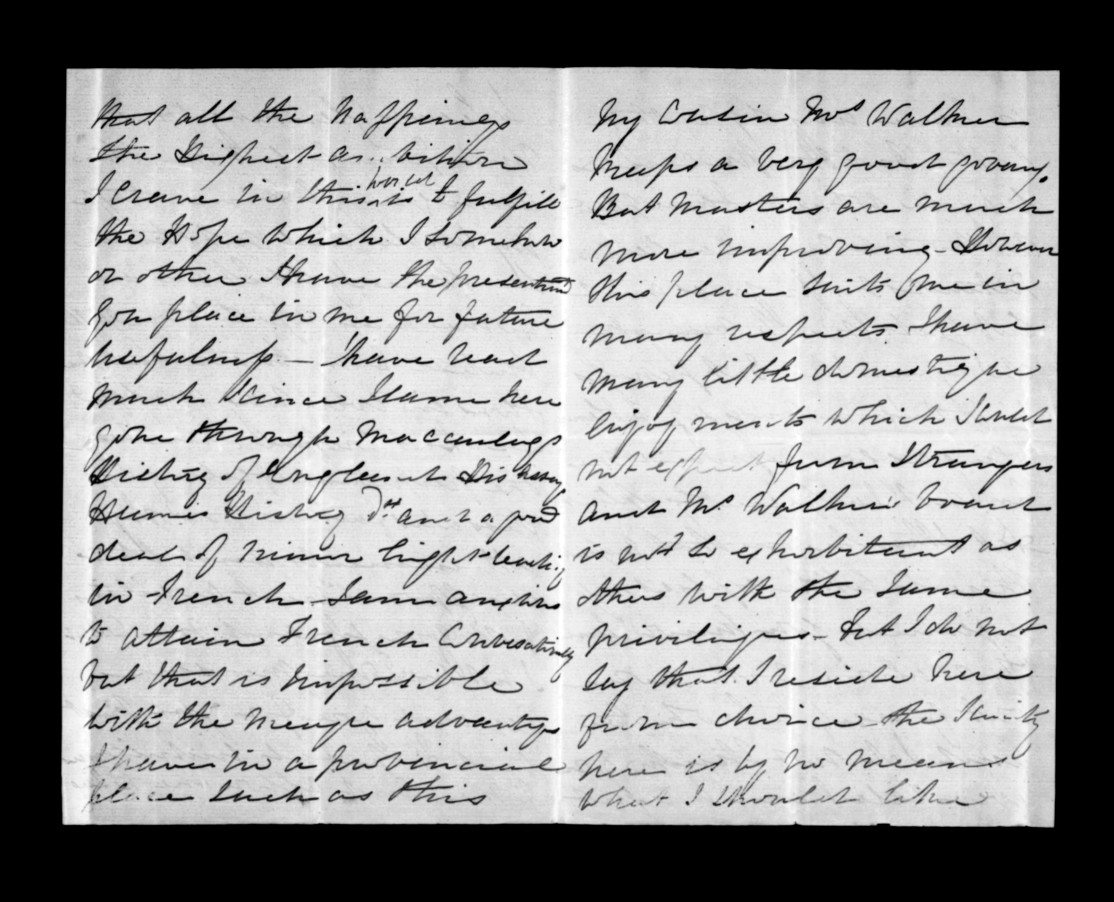 that all the happiness
the Highest ambition
I crave in this world is to fulfill
the Hope which I somehow
or other I have the presentiment
you place in me for future
usefulness — I have read
much since I came here
gone through Maccauleys
History of England His essays
Humes History Do and a good
deal of minor light reading
in French I am anxious
to attain French Conversationaly
but that is impossible
with the meagre advantages
I have in a provincial
place such as this
My Cousin Mrs Walker
keeps a very good
But Masters are much
more improving - However
this place suits me in
many respects I have
many little domestique
enjoyments which I could
not expect from Strangers
and Mrs Walkers board
is not so exhorbitant as
others with the same
priviliges - but I do not
say that I reside here
from choice the Society
here is by no means
what I should like